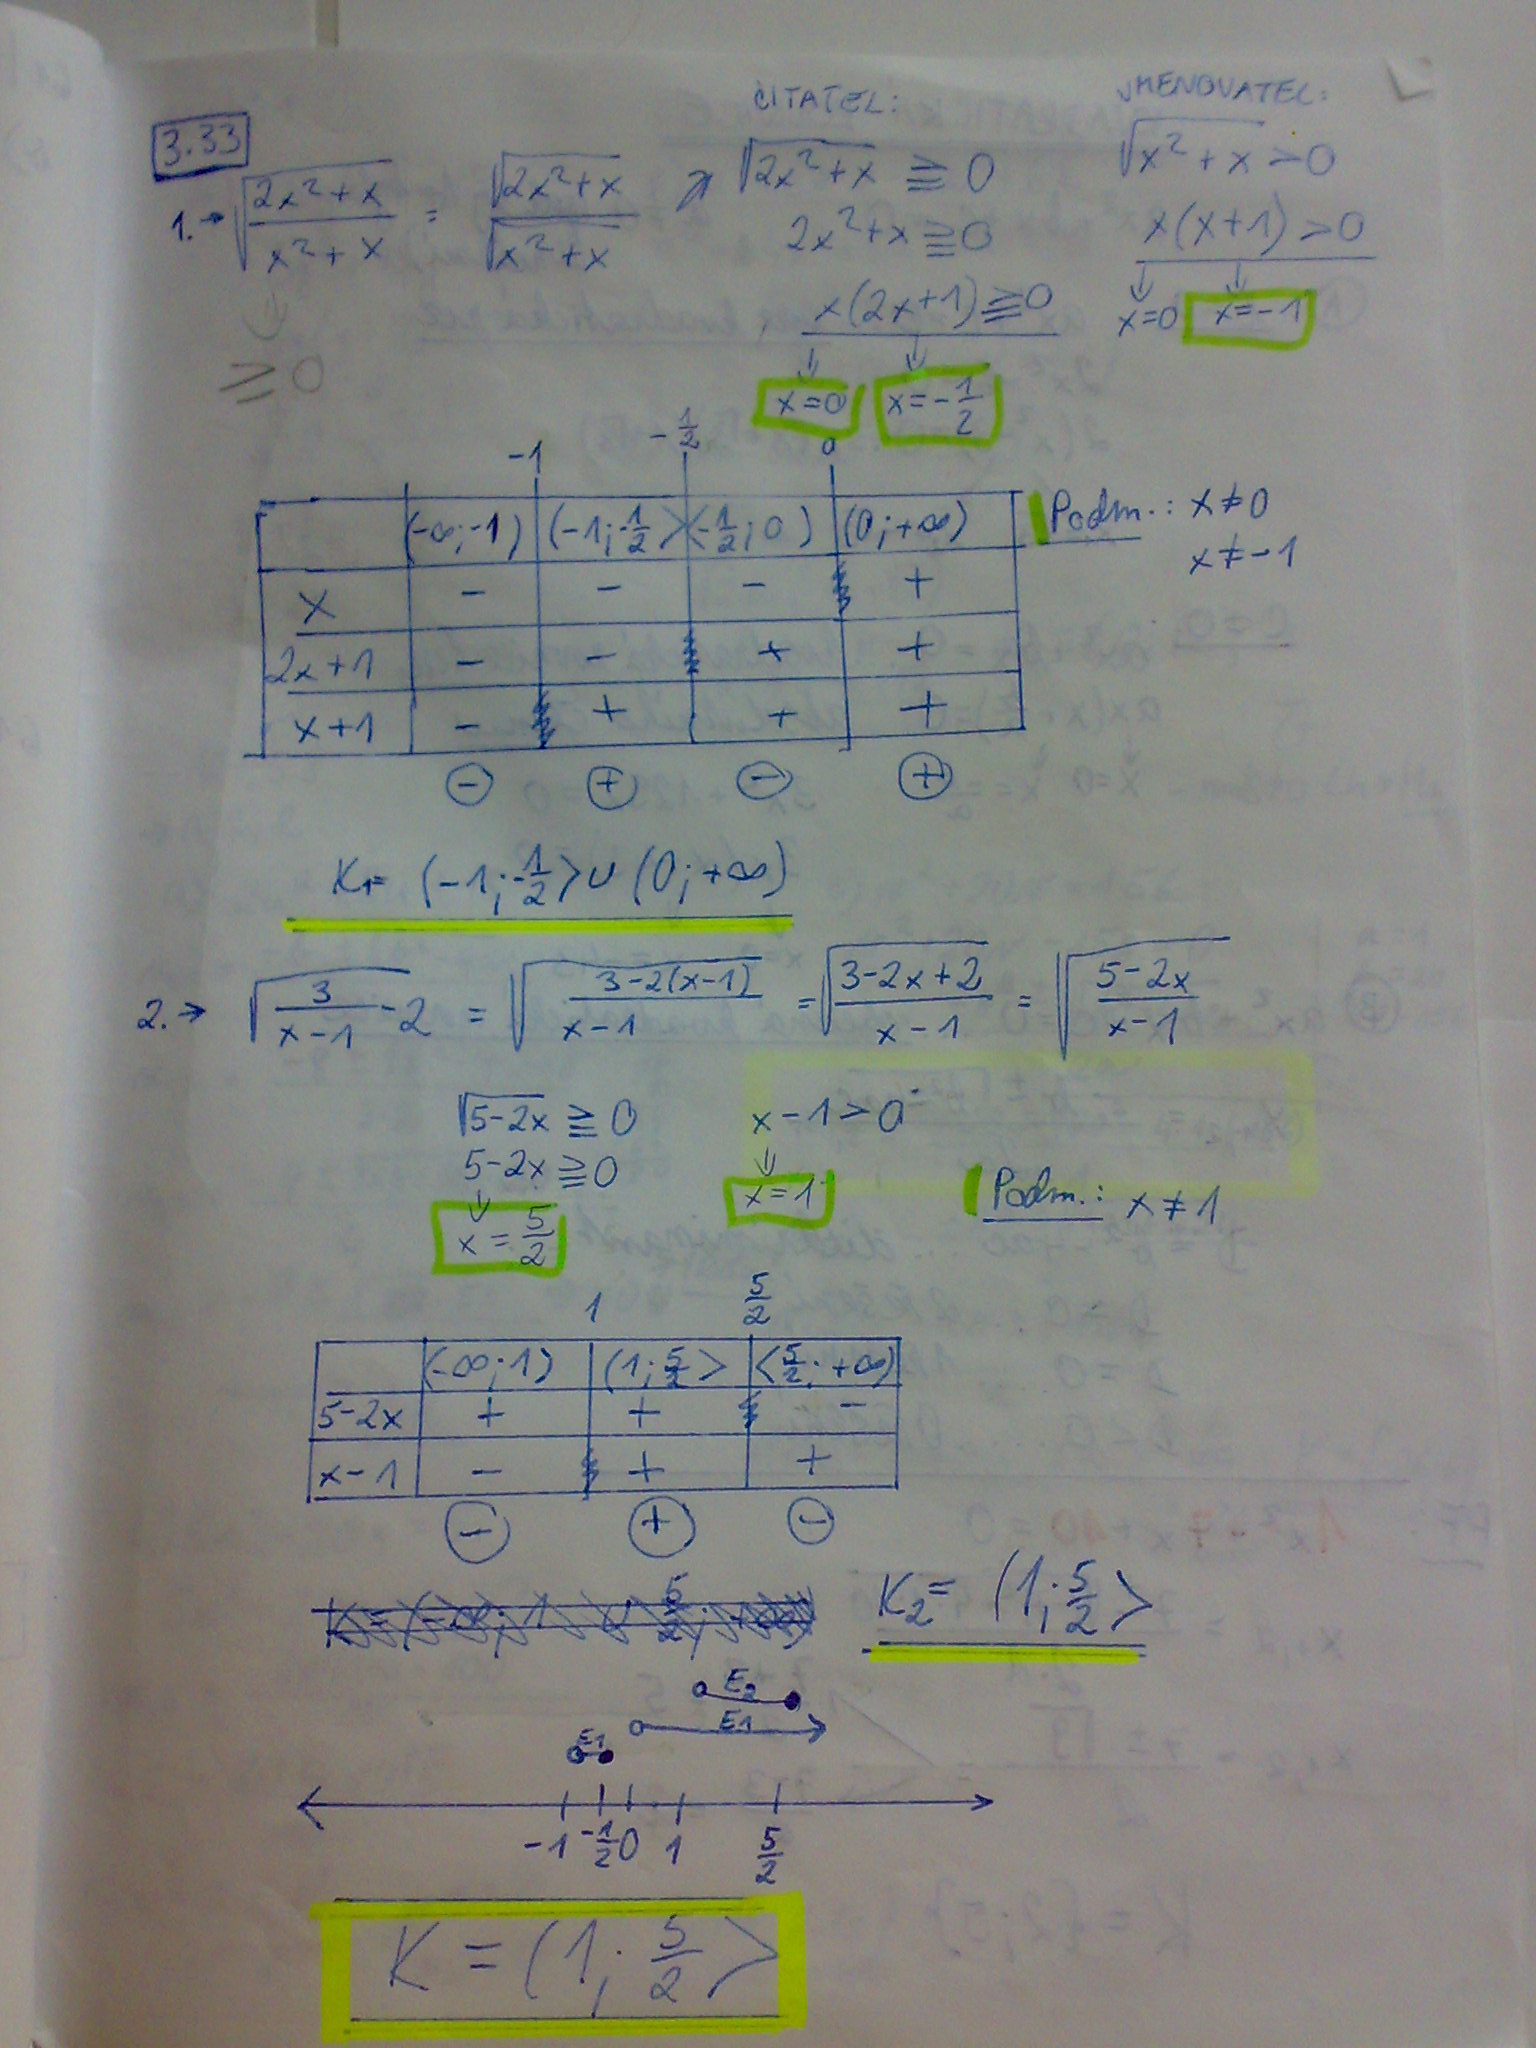 3.33
ČITATEL: JMENOVATEL:
1.→ √((2x²+x)/(x²+x)) = √(2x²+x)/√(x²+x) ↗ √(2x²+x) ≧ 0 √(x²+x) > 0
≥ 0
2x²+x ≧ 0 x(x+1) > 0
x(2x+1) ≧ 0 x=0 x=-1
x=0 x=-1/2
-1 -1/2 0
(-∞;-1) (-1;-1/2> <-1/2;0) (0;+∞) Podm.: x≠0
x≠-1
x - - - +
2x+1 - - + +
x+1 - + + +
⊖ ⊕ ⊖ ⊕
K1= (-1;-1/2> ∪ (0;+∞)
2.→ √(3/(x-1) -2) = √((3-2(x-1))/(x-1)) = √((3-2x+2)/(x-1)) = √((5-2x)/(x-1))
√(5-2x) ≧ 0 x-1 > 0
5-2x ≧ 0 x=1 Podm.: x≠1
x=5/2
1 5/2
(-∞;1) (1;5/2> <5/2;+∞)
5-2x + + -
x-1 - + +
⊖ ⊕ ⊖
K2= (1;5/2>
E2
E1
E1
-1 -1/2 0 1 5/2
K = (1;5/2>